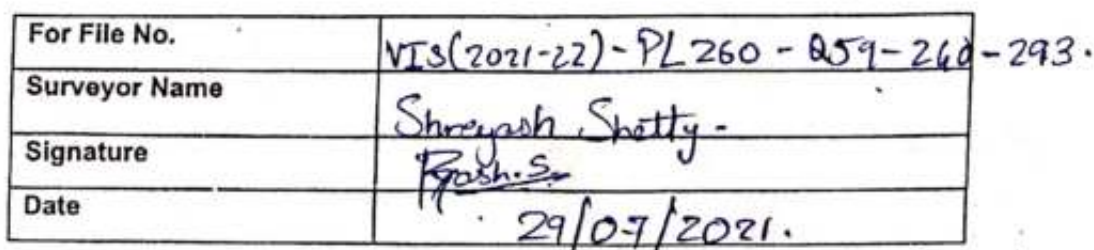 For File No. VIS(2021-22)-PL260-Q59-260-293.
Surveyor Name Shreyash Shetty-
Signature
Date 29/07/2021.